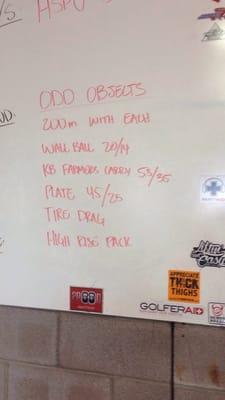 ODD OBJECTS
200m WITH EACH
WALL BALL 20/14
KB FARMERS CARRY 53/35
PLATE 45/25
TIRE DRAG
HIGH RISE PACK
APPRECIATE
THICK
THIGHS
GOLFERAID